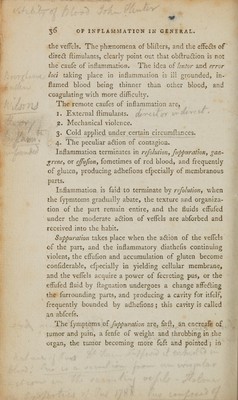 of blood John Hunter
36 OF INFLAMMATION IN GENERAL.
the vessels. The phænomena of blisters, and the effects of
direct stimulants, clearly point out that obstruction is not
the cause of inflammation. The idea of lentor and error
loci taking place in inflammation is ill grounded, in-
flamed blood being thinner than other blood, and
coagulating with more difficulty.
The remote causes of inflammation are,
1. External stimulants. direct or indirect.
2. Mechanical violence.
3. Cold applied under certain circumstances.
4. The peculiar action of contagion.
Inflammation terminates in resolution, suppuration, gan-
grene, or effusion, sometimes of red blood, and frequently
of gluten, producing adhesions especially of membranous
parts.
Inflammation is said to terminate by resolution, when
the symptoms gradually abate, the texture and organiza-
tion of the part remain entire, and the fluids effused
under the moderate action of vessels are absorbed and
received into the habit.
Suppuration takes place when the action of the vessels
of the part, and the inflammatory diathesis continuing
violent, the effusion and accumulation of gluten become
considerable, especially in yielding cellular membrane,
and the vessels acquire a power of secreting pus, or the
effused fluid by stagnation undergoes a change affecting
the surrounding parts, and producing a cavity for itself,
frequently bounded by adhesions; this cavity is called
an abscess.
The symptoms of suppuration are, first, an encrease of
tumor and pain, a sense of weight and throbbing in the
organ, the tumor becoming more soft and pointed; in